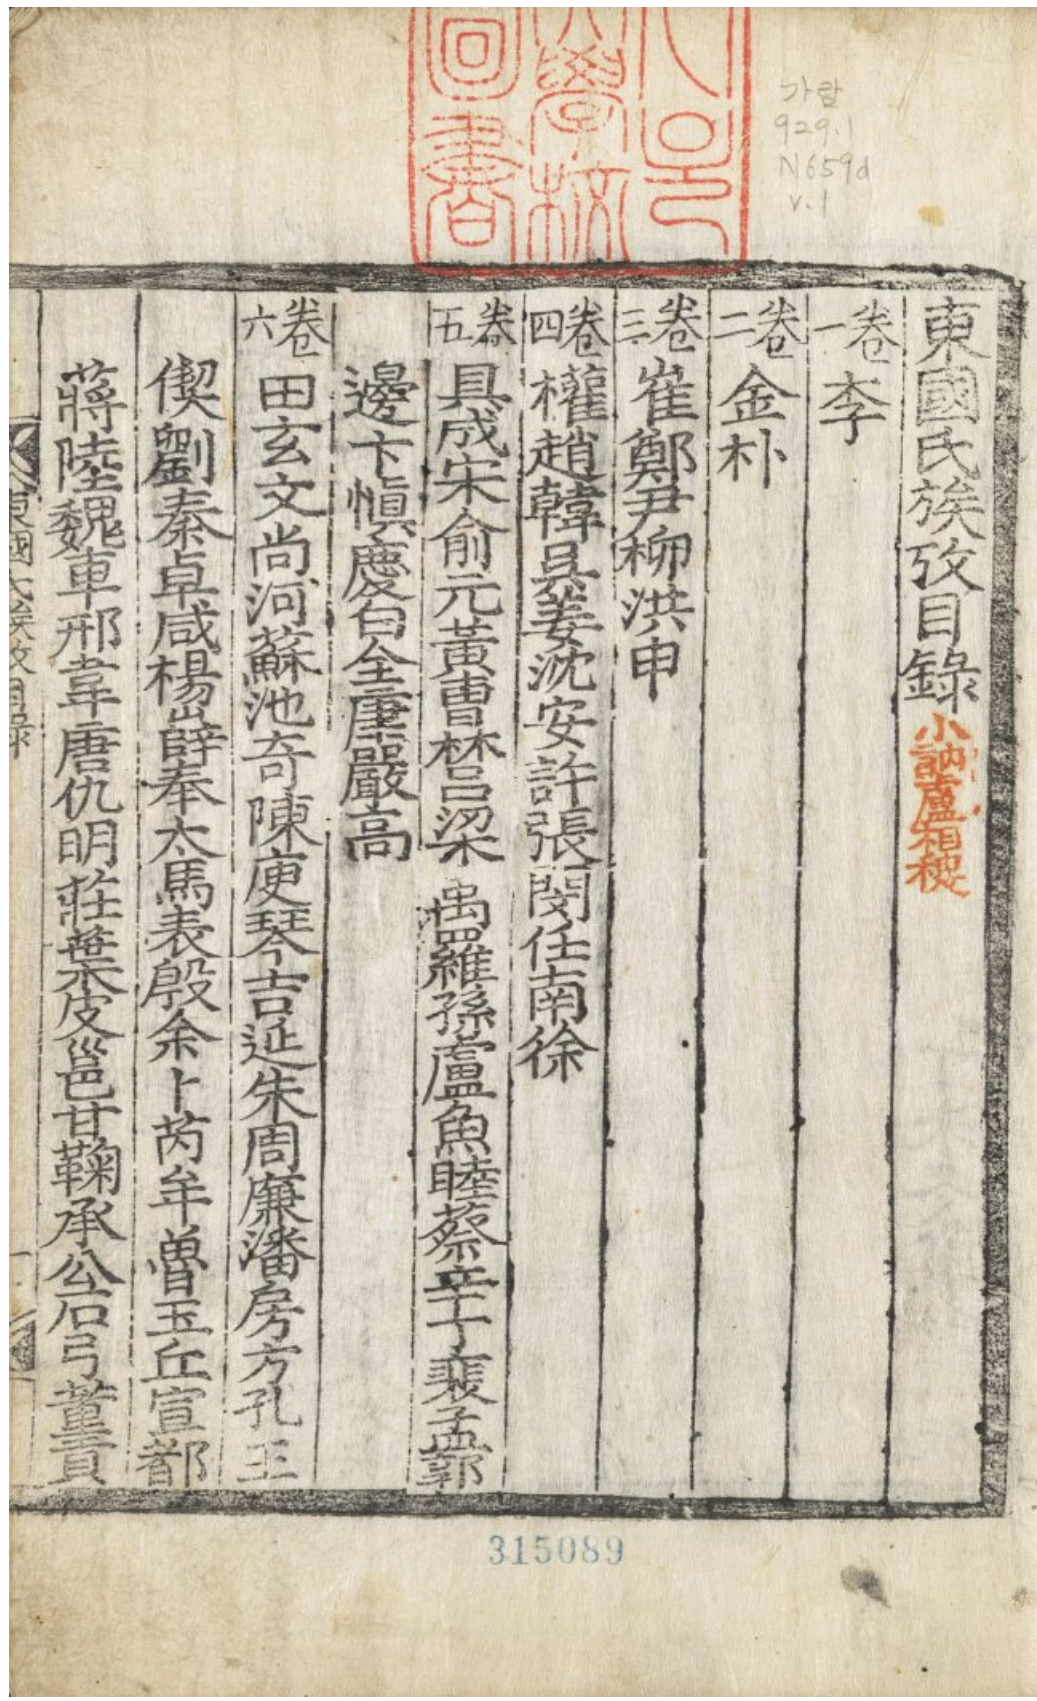 가람
929.1
N659d
v.1
東國氏族攷目錄
小訥盧相稷
卷一 李
卷二 金朴
卷三 崔鄭尹柳洪申
卷四 權趙韓吳姜沈安許張閔任南徐
卷五 具成宋俞元黃曺林呂梁禹羅孫盧魚睦蔡辛丁裴孟郭
邊卞愼慶白全康嚴高
卷六 田玄文尚河蘇池奇陳庾琴吉延朱周廉潘房方孔王
偰劉秦卓咸楊薛奉太馬表殷余卜芮牟曾玉丘宣都
蔣陸魏車邢韋唐仇明莊葉皮邕甘鞠承公石弓董賁
東國氏族攷目錄
一
315089